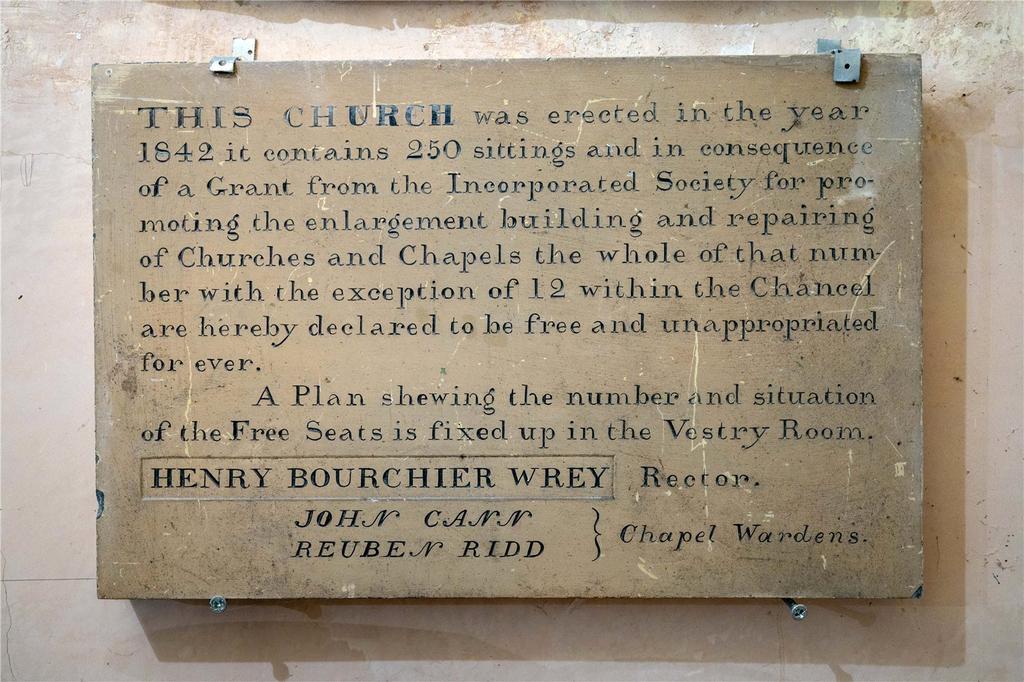 THIS CHURCH was erected in the year
1842 it contains 250 sittings and in consequence
of a Grant from the Incorporated Society for pro-
moting the enlargement building and repairing
of Churches and Chapels the whole of that num-
ber with the exception of 12 within the Chancel
are hereby declared to be free and unappropriated
for ever.
A Plan shewing the number and situation
of the Free Seats is fixed up in the Vestry Room.
HENRY BOURCHIER WREY Rector.
JOHN CANN
REUBEN RIDD } Chapel Wardens.